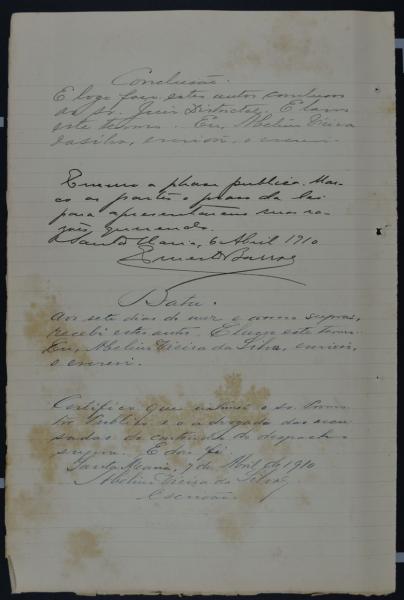 Conclusão.
E logo faço estes autos conclusos
ao sr. Juiz Districtal. E lavro
este termo. Eu, Abelino Vieira
da Silva, escrivão, o escrevi.
a phase publica. Mar-
co as partes o praso da lei
para apresentarem suas ra-
zões, querendo.
Santa Maria, 6 Abril 1910
Ernesto Barros
Data.
Aos sete dias do mez e anno supra,
recebi estes autos. E lavro este termo.
Eu, Abelino Vieira da Silva, escrivão,
o escrevi.
Certifico que intimei o sr. Promo-
tor Publico e o advogado das accu-
sadas do conteúdo do despacho
supra. E dou fé.
Santa Maria, 7 de Abril de 1910
Abelino Vieira da Silva
Escrivão